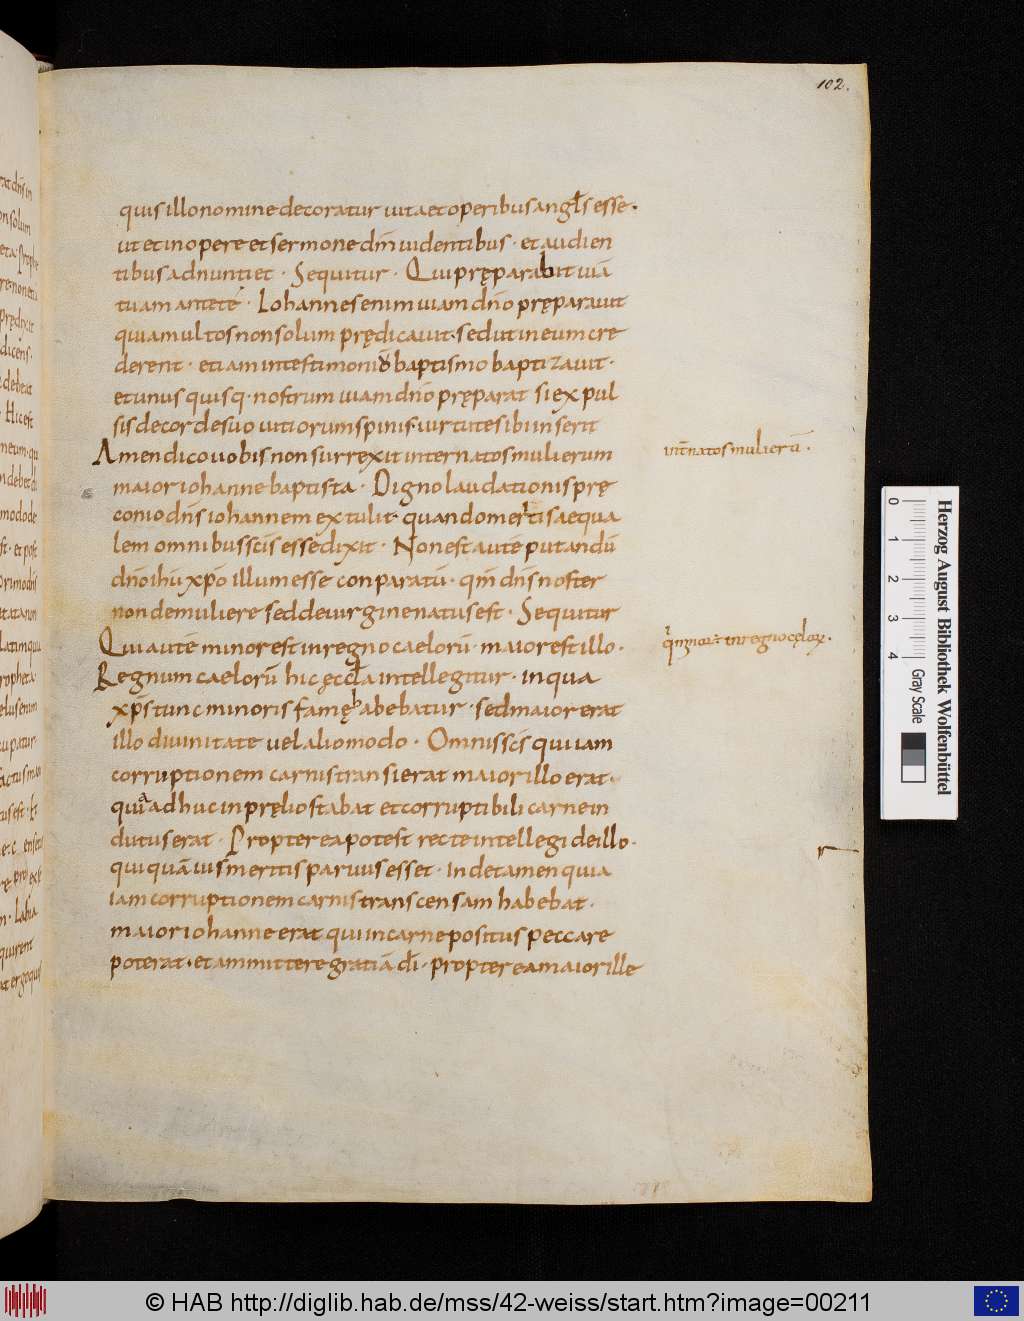 102.
quis illo nomine decoratur uita et operibus angl̅s esse.
ut et in opere et sermone dm̅ uidentibus · et audien
tibus adnuntiet · Sequitur · Qui pręparabit uiā
tuam ante te · Iohannes enim uiam dn̅o pręparauit
quia multos non solum prędicauit · sed ut in eum cre
derent · etiam in testimonio baptismo baptizauit ·
et unusquisq · nostrum uiam dn̅o pręparat si expul
sis de corde suo uitiorum spinis · uirtutes ibi inserit
Amen dico uobis non surrexit inter natos mulierum
int̅ natos mulierū ·
maior iohanne baptista · Digno laudationis prę
conio dn̅s iohannem extulit · quando meritis aequa
lem omnibus sc̅is esse dixit · Non est autē putandū
dn̅o ihū xp̅o illum esse conparatū · qm̅ dn̅s noster
non de muliere sed de uirgine natus est · Sequitur
Qui autē minor est in regno caelorū · maior est illo ·
in regno cęloꝝ ·
Regnum caelorū hic ęccl̅a intellegitur · in qua
xp̅s tunc minoris famę habebatur · sed maior erat
illo diuinitate uel alio modo · Omnis sc̅s qui iam
corruptionem carnis transierat maior illo erat ·
quia adhuc in pręlio stabat et corruptibili carne in
dutus erat · Propterea potest recte intellegi de illo ·
qui quāuis meritis paruus esset · in de tamen quia
iam corruptionem carnis transcensam habebat ·
maior iohanne erat qui in carne positus peccare
poterat · et ammittere gratiā dī · propterea maior ille
Herzog August Bibliothek Wolfenbüttel
0 1 2 3 4
Gray Scale
© HAB http://diglib.hab.de/mss/42-weiss/start.htm?image=00211